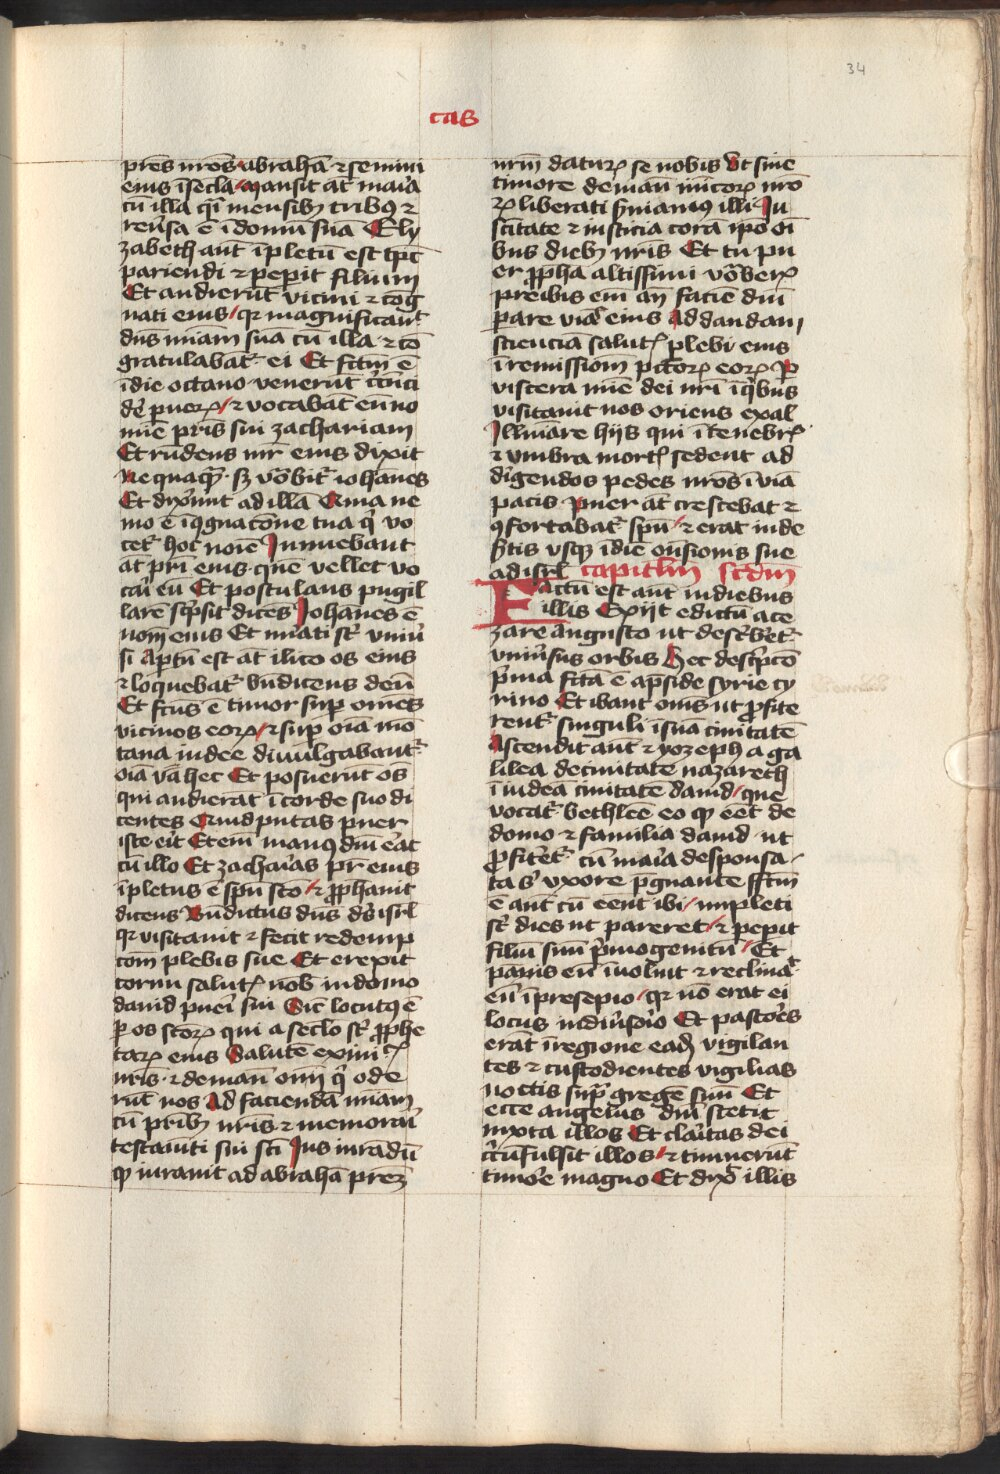 34
cas
p̄res nr̄os abrahā ⁊ semini
eius ī secla mansit at̄ maria
cū illa q̄i mensibꝫ tribꝯ ⁊
reuersa ē ī domū suā Ely
zabeth aut̄ īpletū est tp̄s
pariendi ⁊ peperit filium
Et audierūt vicini ⁊ cog
nati eius qꝛ magnificauit
dn̄s miam̄ suā cū illa ⁊ cō
gratulabāt̄ ei Et fc̄m ē
ī die octauo venerūt circūci
de᷑ pueꝝ ⁊ vocabāt eū no
mīe pr̄is sui zachariam
Et rn̄dens mr̄ eius dixit
Nequaqᷓ sꝫ vōbit᷑ iohānes
Et dixerūt ad illā Quia ne
mo ē ī ꝯgnac̄one tua q̄ vo
cet᷑ hoc noīe Innuebant
at̄ pr̄i eius quē vellet vo
cari eū Et postulans pugil
larē sc̄psit dicēs Iohānes ē
nom̄ eius Et mirati sc̄ vniū
si Ap̄tū est at̄ ilico os eius
⁊ loquebat᷑ bn̄dicens deū
Et fc̄us ē timor suꝑ omēs
vicinos eoꝝ ⁊ suꝑ oīa mō
tana iudee diuulgabant᷑
oīa v̄a hec Et posuerūt oēs
qui audierāt ī corde suo di
centes Quid putas puer
iste erit Etem̄ manꝯ dn̄i erat
cū illo Et zacharias pr̄ eius
īpletus ē spū sc̄o ⁊ ꝓphauit
dicens Bn̄dictus dn̄s d̄s isrl̄
qꝛ visitauit ⁊ fecit redemp
com̄ plebis sue Et erexit
cornu salut̄ nob̄ in domo
dauid pueri sui Sic̄ locutꝯ ē
ꝑ os sc̄oꝝ qui a seclo sc̄ ꝓphe
taꝝ eius Salutē ex īmi͛
nr̄is ⁊ de manū om̄i q̄ ode
rūt nos Ad faciendā miam̄
cū pr̄ibꝫ nr̄is ⁊ memorari
testam̄ti sui sc̄i Ius iurādū
qꝫ iurauit ad abrahā prem̄
nr̄m daturꝝ se nobis Vt sine
timore de manū im̄icoꝝ nr̄o
ꝝ liberati seruiamꝯ illi In
sc̄itate ⁊ iusticia corā ip̄o oī
bus diebꝫ nr̄is Et tu pu
er ꝓpha altissimi vōberꝭ
preibis em̄ an̄ faciē dn̄i
parare vias eius Ad dandam
sciencia salutꝭ plebi eius
ī remissiom̄ pc̄coꝝ eoꝝ P
viscera mīe dei nr̄i ī q̄bus
visitauit nos oriens ex al
Illuīare hijs qui ī tenebrꝭ
⁊ vmbra mortꝭ sedent ad
dirigendos pedes nr̄os ī viā
pacis Puer at̄ crescebat ⁊
ꝯfortabat᷑ spū ⁊ erat in de
sertis vsqꝫ ī diē on̄sionis sue
ad isrl̄ capitl̄m sc̄dm̄
Factū est aut̄ in diebus
illis Exijt edictū a ce
zare augusto ut descr̄bēt᷑
vniūsus orbis Hec descr̄pcō
p̄ma fc̄ā ē a p̄side syrie cy
rino Et ibant om̄s ut ꝓfite
rent᷑ singuli ī suā ciuitatē
Ascendit aut̄ ⁊ yozeph a ga
lilea de ciuitate nazareth
ī iudeā ciuitatē dauid que
vocat᷑ bethleē eo qꝫ eēt de
domo ⁊ familia dauid ut
ꝓfiteret᷑ cū maria desponsa
ta s᷑ vxore p̄gnante fc̄m
ē aut̄ cū eent ibi impleti
sc̄ dies ut pareret ⁊ peꝑit
filiū suū p̄mogenitū Et
pannis eū īuoluit ⁊ reclinat
eū ī presepio qꝛ nō erat ei
locus in diūsorio Et pastores
erāt ī regione eadē vigilan
tes ⁊ custodientes vigilias
noctis sup̄ gregē suū Et
ecce angelus dn̄i stetit
iuxta illos Et claritas dei
circūfulsit illos ⁊ timuerūt
timore magno Et dixit illis